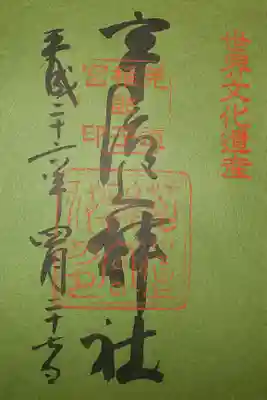 世界文化遺産
宇治上神社
平成二十六年四月二十七日